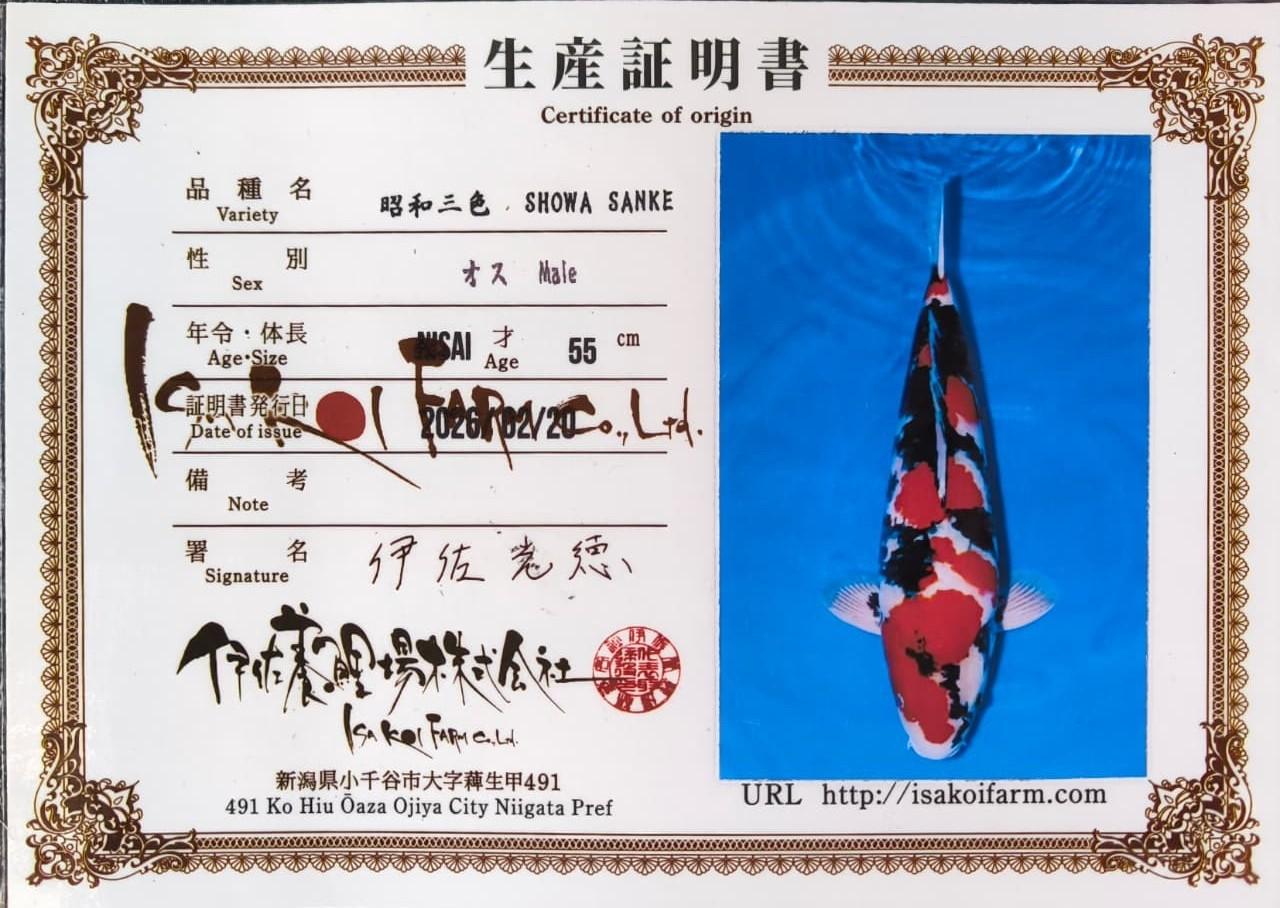 生産証明書
Certificate of origin
品種名 昭和三色 SHOWA SANKE
Variety
性別 オス Male
Sex
年令・体長 NISAI 才 55 cm
Age・Size Age
Isa Koi Farm Co., Ltd.
証明書発行日 2026/02/20
Date of issue
備考
Note
署名 伊佐
Signature
伊佐養鯉場株式会社
Isa Koi Farm Co., Ltd.
新潟県小千谷市大字薭生甲491
491 Ko Hiu Ōaza Ojiya City Niigata Pref
URL http://isakoifarm.com